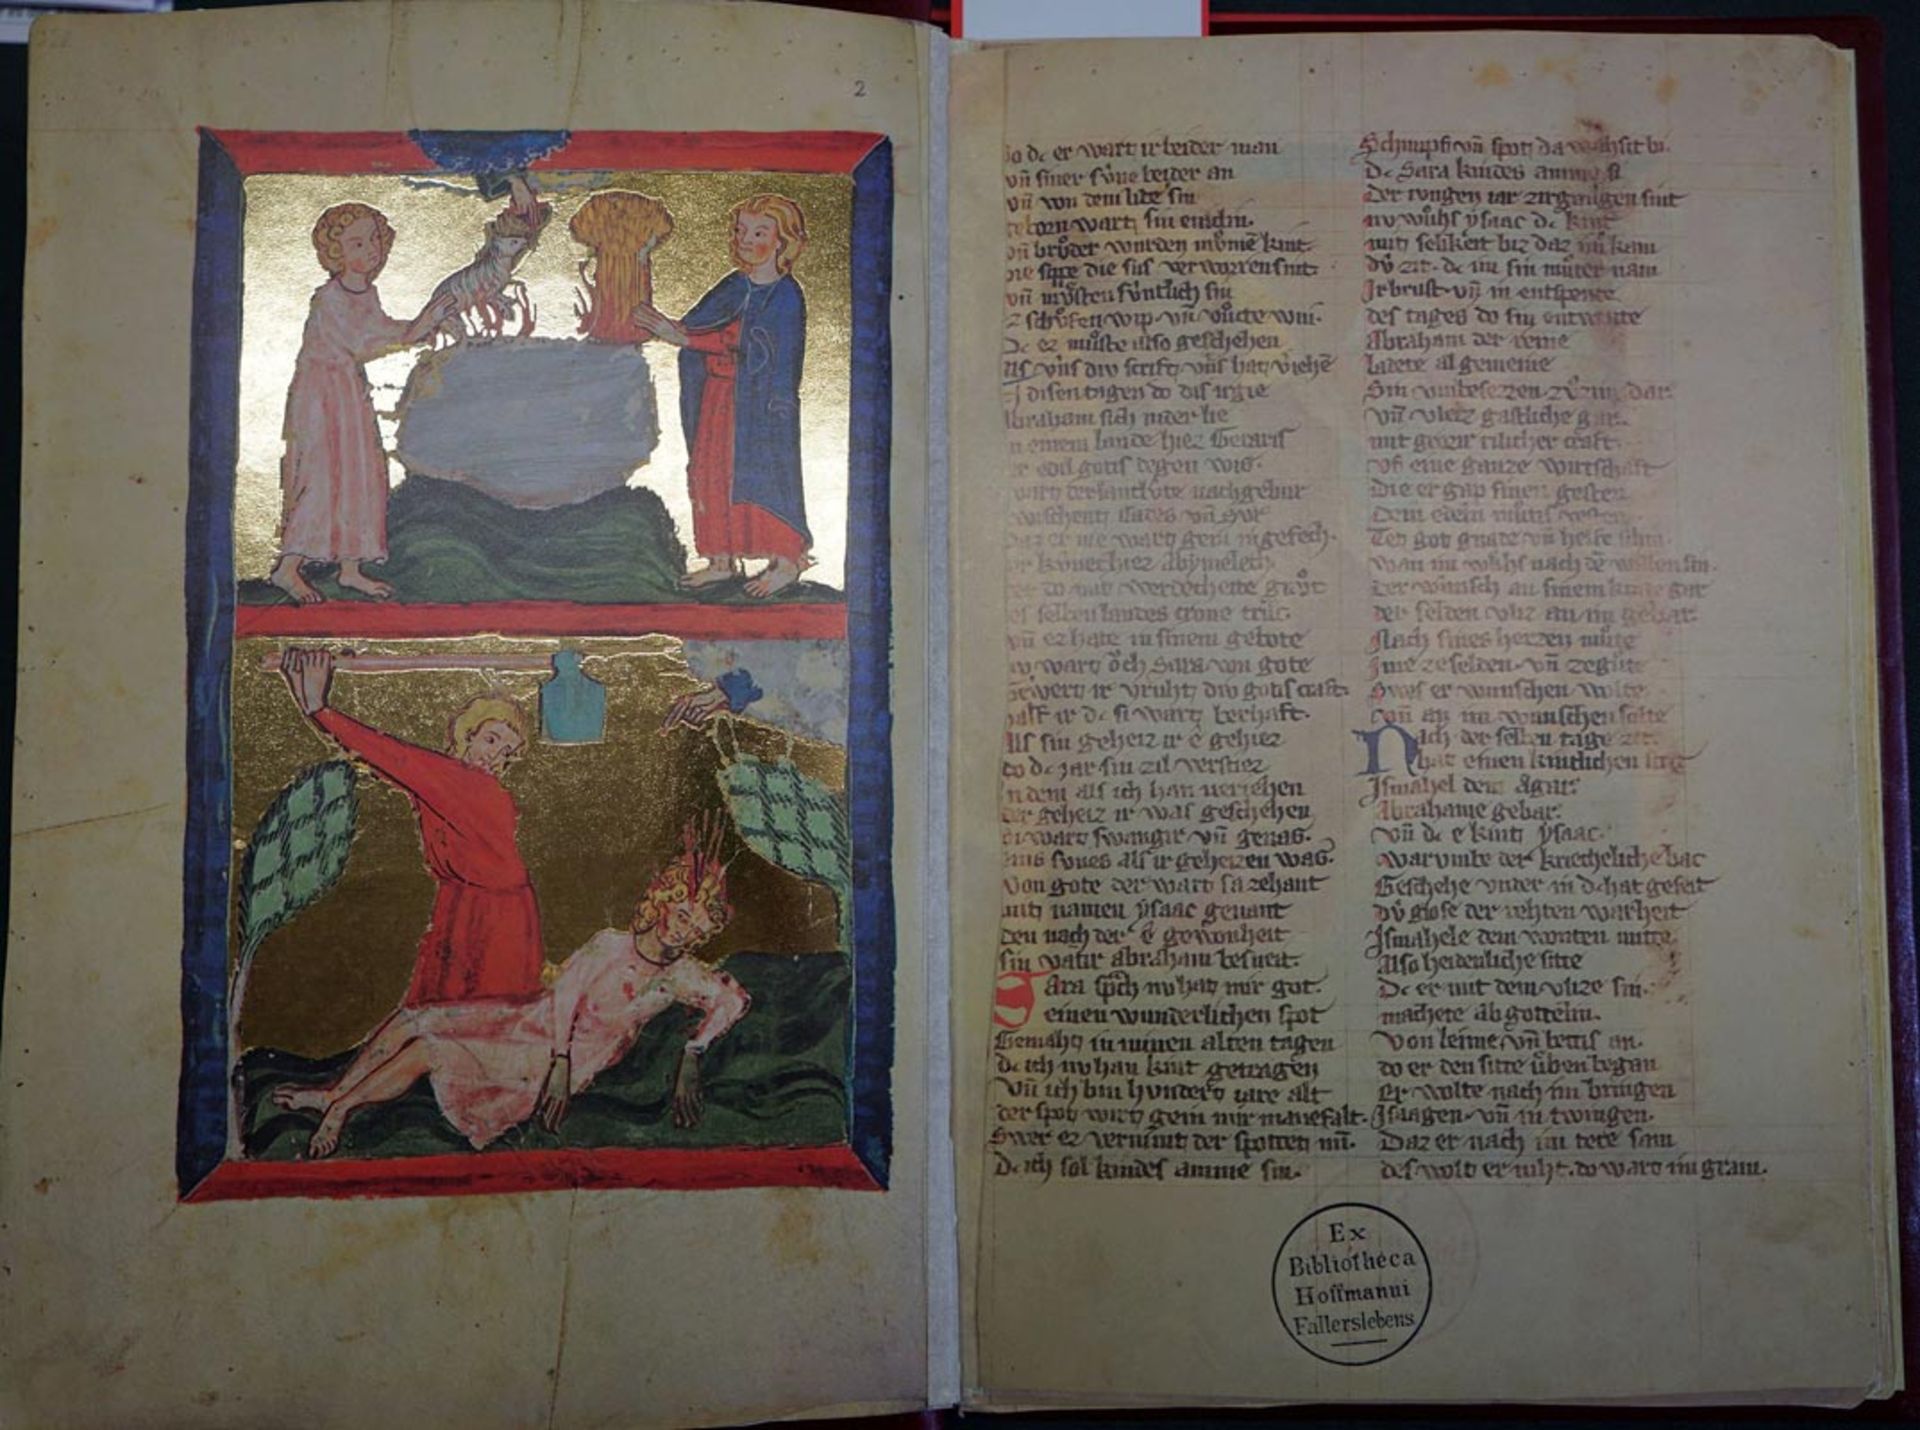 2
do dc er wart ir beider man
vn̄ siner sv̊ne beider an
vn̄ von dem libe sin
geborn wart sin
vn̄ brůder wurden
die sus verworren sint
vn̄ mv̊sten sv̊ntlich sin
wip vn̄ win.
Dc ez můste also geschehen
als vns div scrift vns hat v̊iehē
disen tagen do dis irgie
Abraham sich nider lie
in einem lande hiez Geraris
der edil gotis degen wis.
wart der lantlv̊te nachgebur
zwischent vn̄ Sur
Daz er ie wart gein in gesech.
der kv̊nec hiez Abymelech.
selben landes crone trůc.
vn̄ er hate in sinem gebote
nv wart ǒch Sara von gote
Gewert ir vruht div gotis craft
half ir dc si wart berhaft.
Als sin geheiz ir ê gehiez
do dc jar sin zil verstiez
in dem als ich han veriehen
der geheiz ir was geschehen
si wart swangir vn̄ genas.
eins svnes als ir geheizen was.
Von gote der wart sa zehant
mit namen ysaac genant
den nach der ê gewonheit
sin vatir abraham besneit.
Sara sp̄ch nv hat mir got.
einen wunderlichen spot
Gemaht in minen alten tagen
dc ich nv han kint getragen
Vn̄ ich bin hvndert iare alt
der spot wirt gein mir manefalt.
Swer ez vernimt der spottet min.
Dc ich sol kindes amme sin.
Schimpf vn̄ spot da
dc Sara kindes amme si
Der iungen iar zirgangen sint
nv wůhs ysaac dc kint
mit selikeit biz daz im kam
dv̊ zit. dc im sin můter nam
Ir brust. vn̄ in entspente
des tages do sin entwente
Abraham der reine
ladete al gemeine
Sin vmbesezzen zv̊zim dar
vn̄ vleiz gastliche gar.
mit craft.
vf eine ganze wirtschaft
die er gap sinen gesten
Dem edeln můtis vesten
Tet got gnade vn̄ helfe schin.
wan im wůhs nach dē willen sin
der wunsch an sinem kinde gar
der selden vliz an im gebar.
Nach sines herzen můte
Ime ze selden. vn̄ zegůte
Swes er wunschen wolte
vn̄ an im wunschen solte
Nach der selben tage zit.
hat einen kintlichen strit
Ismahel dem Agar
Abrahame gebar.
vn̄ dc e kint ysaac.
warvmbe der kriecheliche bac
Geschehe vnder in dc hat geseit
dv̊ glose der rehten warheit
Ismahele dem wonten mitte
Also heidenliche sitte
Dc er mit dem vlize sin.
machete abgottelin.
Von leime vn̄ bettis an.
do er den sitte v̊ben began
Er wolte nach im bringen
Isaagen. vn̄ in twingen.
Daz er nach im tete sam
des wolt er niht. do wart im gram.
Ex
Bibliotheca
Hoffmanni
Fallerslebens